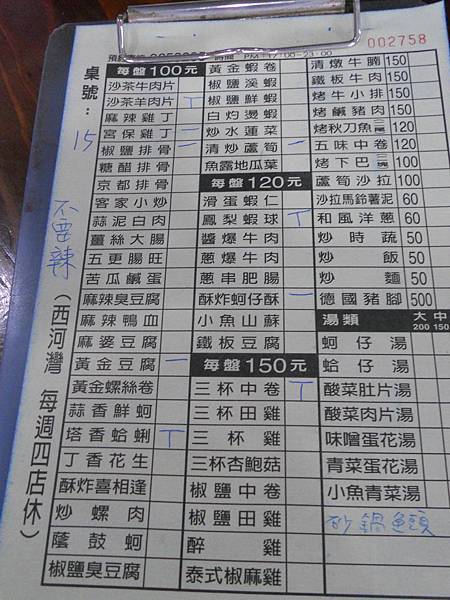 002758
PM 17:00-23:00
桌號：15
不要辣
（西河灣 每週四店休）
每盤100元
沙茶牛肉片
沙茶羊肉片 T
麻辣雞丁
宮保雞丁 一
椒鹽排骨 一
糖醋排骨
京都排骨
客家小炒
蒜泥白肉
薑絲大腸
五更腸旺
苦瓜鹹蛋
麻辣臭豆腐
麻辣鴨血
麻婆豆腐
黃金豆腐 一
黃金螺絲卷
蒜香鮮蚵
塔香蛤蜊 T
丁香花生
酥炸喜相逢
炒螺肉
蔭鼓蚵
椒鹽臭豆腐
黃金蝦卷
椒鹽溪蝦
椒鹽鮮蝦
白灼燙蝦
炒水蓮菜
清炒蘆筍 一
魚露地瓜葉
每盤120元
滑蛋蝦仁
鳳梨蝦球 T
醬爆牛肉
蔥爆牛肉
蔥串肥腸
酥炸蚵仔酥 一
小魚山蘇
鐵板豆腐
每盤150元
三杯中卷 T
三杯田雞
三杯雞
三杯杏鮑菇
椒鹽中卷
椒鹽田雞
醉雞
泰式椒麻雞
清燉牛腩 150
鐵板牛肉 150
烤牛小排 150
烤鹹豬肉 150
烤秋刀魚 120
五味中卷 120
烤下巴 100
蘆筍沙拉 100
沙拉馬鈴薯泥 60
和風洋蔥 60
炒時蔬 50
炒飯 50
炒麵 50
德國豬腳 500
湯類 大200 中150
蚵仔湯
蛤仔湯
酸菜肚片湯
酸菜肉片湯
味噌蛋花湯
青菜蛋花湯
小魚青菜湯
砂鍋魚頭